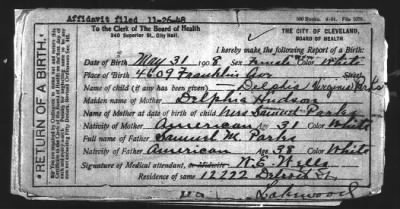 Affidavit filed 11-26-48
To the Clerk of The Board of Health
340 Superior St., City Hall.
THE CITY OF CLEVELAND,
BOARD OF HEALTH
RETURN OF A BIRTH.
I hereby make the following Report of a Birth:
Date of Birth May 31 1908 Sex Female Color White
Place of Birth 4609 Franklin Ave Street
Name of child (if any has been given) Delpha Virginia Parks
Maiden name of Mother Delphia Hudson
Name of Mother at date of birth of child Mrs Samuel Parks
Nativity of Mother American Age 31 Color White
Full name of Father Samuel M. Parks
Nativity of Father American Age 38 Color White
Signature of Medical attendant, or Midwife W. E. Wells
Residence of same 12222 Detroit St
Lakewood